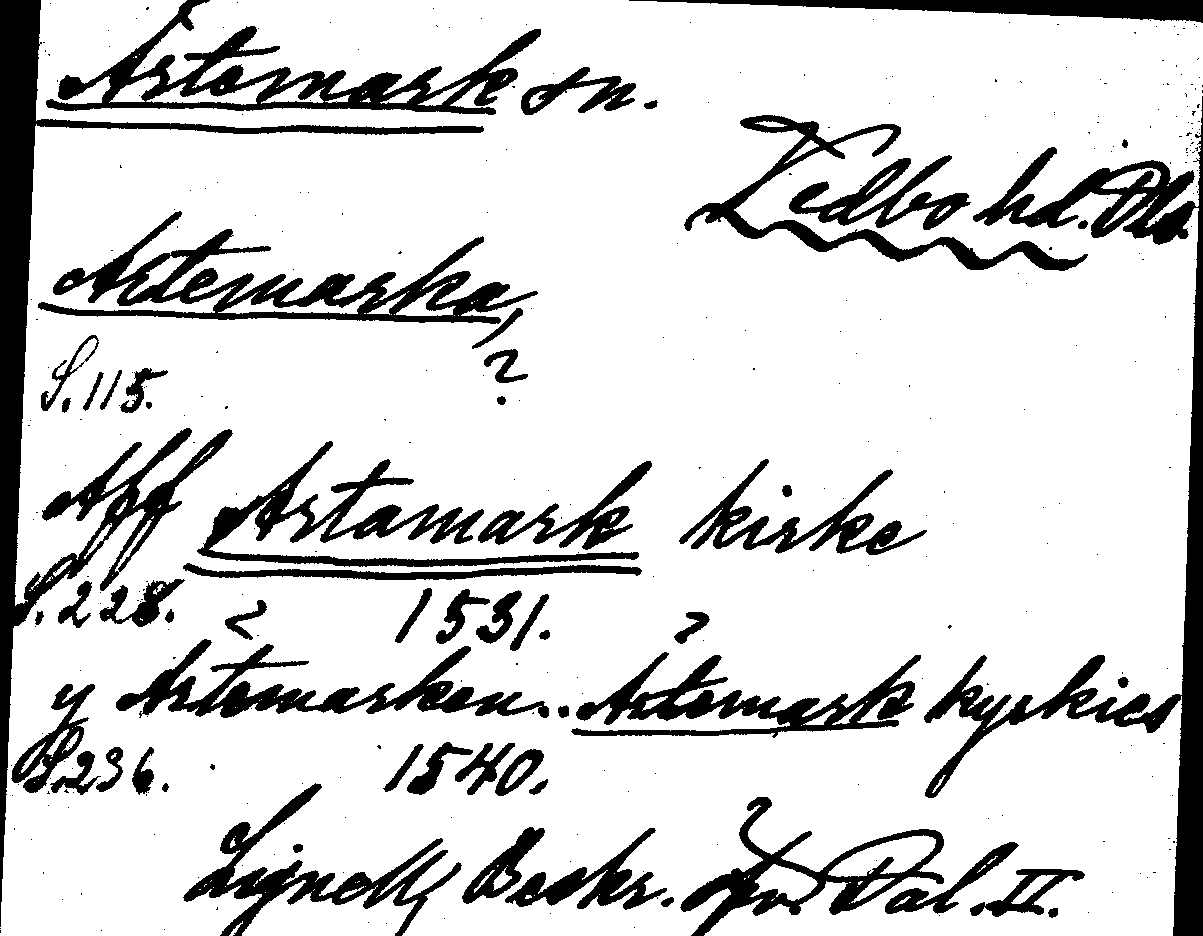 Ärtemark sn.
Vedbo hd. Dls.
Artemarka,
?
S. 115.
Aff Artamark kirke
S. 228. ? 1531. ?
y Artemarken.. Artemark kyrkies
S. 236. 1540.
Lignell, Beskr. öfv. Dal. II.